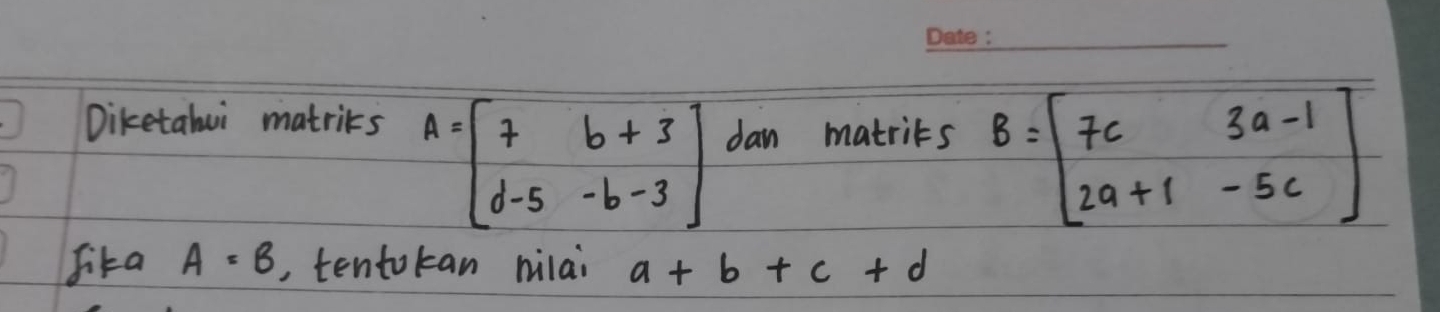 Date :
Diketahui matriks A = [ 7 b + 3 ] dan matriks B = [ 7c 3a - 1 ]
[ d - 5 -b - 3 ] [ 2a + 1 - 5c ]
Jika A = B, tentukan nilai a + b + c + d